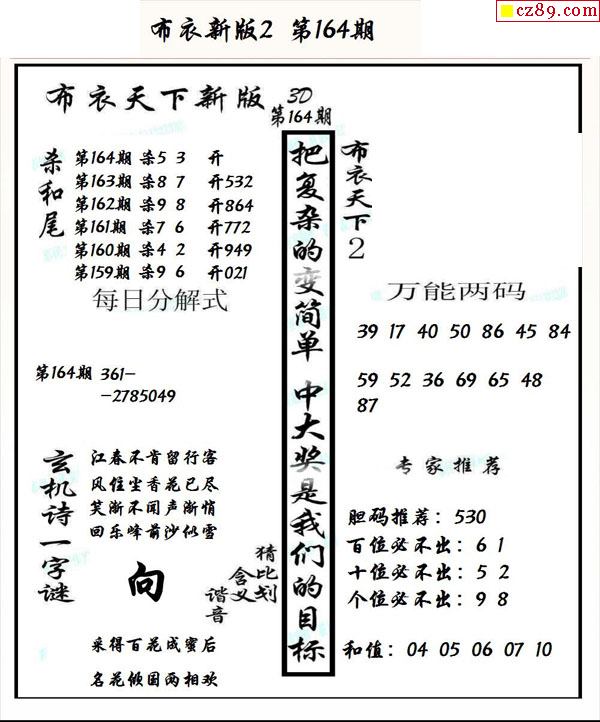 cz89.com
布衣新版2 第164期
布衣天下新版
3D
第164期
杀和尾
第164期 杀5 3 开
第163期 杀8 7 开532
第162期 杀9 8 开864
第161期 杀7 6 开772
第160期 杀4 2 开949
第159期 杀9 6 开021
每日分解式
第164期 361-
-2785049
玄机诗一字谜
江春不肯留行客
风住尘香花已尽
笑渐不闻声渐悄
回乐峰前沙似雪
向
猜比划
含义
谐音
采得百花成蜜后
名花倾国两相欢
把复杂的变简单 中大奖是我们的目标
布衣天下2
万能两码
39 17 40 50 86 45 84
59 52 36 69 65 48
87
专家推荐
胆码推荐：530
百位必不出：6 1
十位必不出：5 2
个位必不出：9 8
和值：04 05 06 07 10